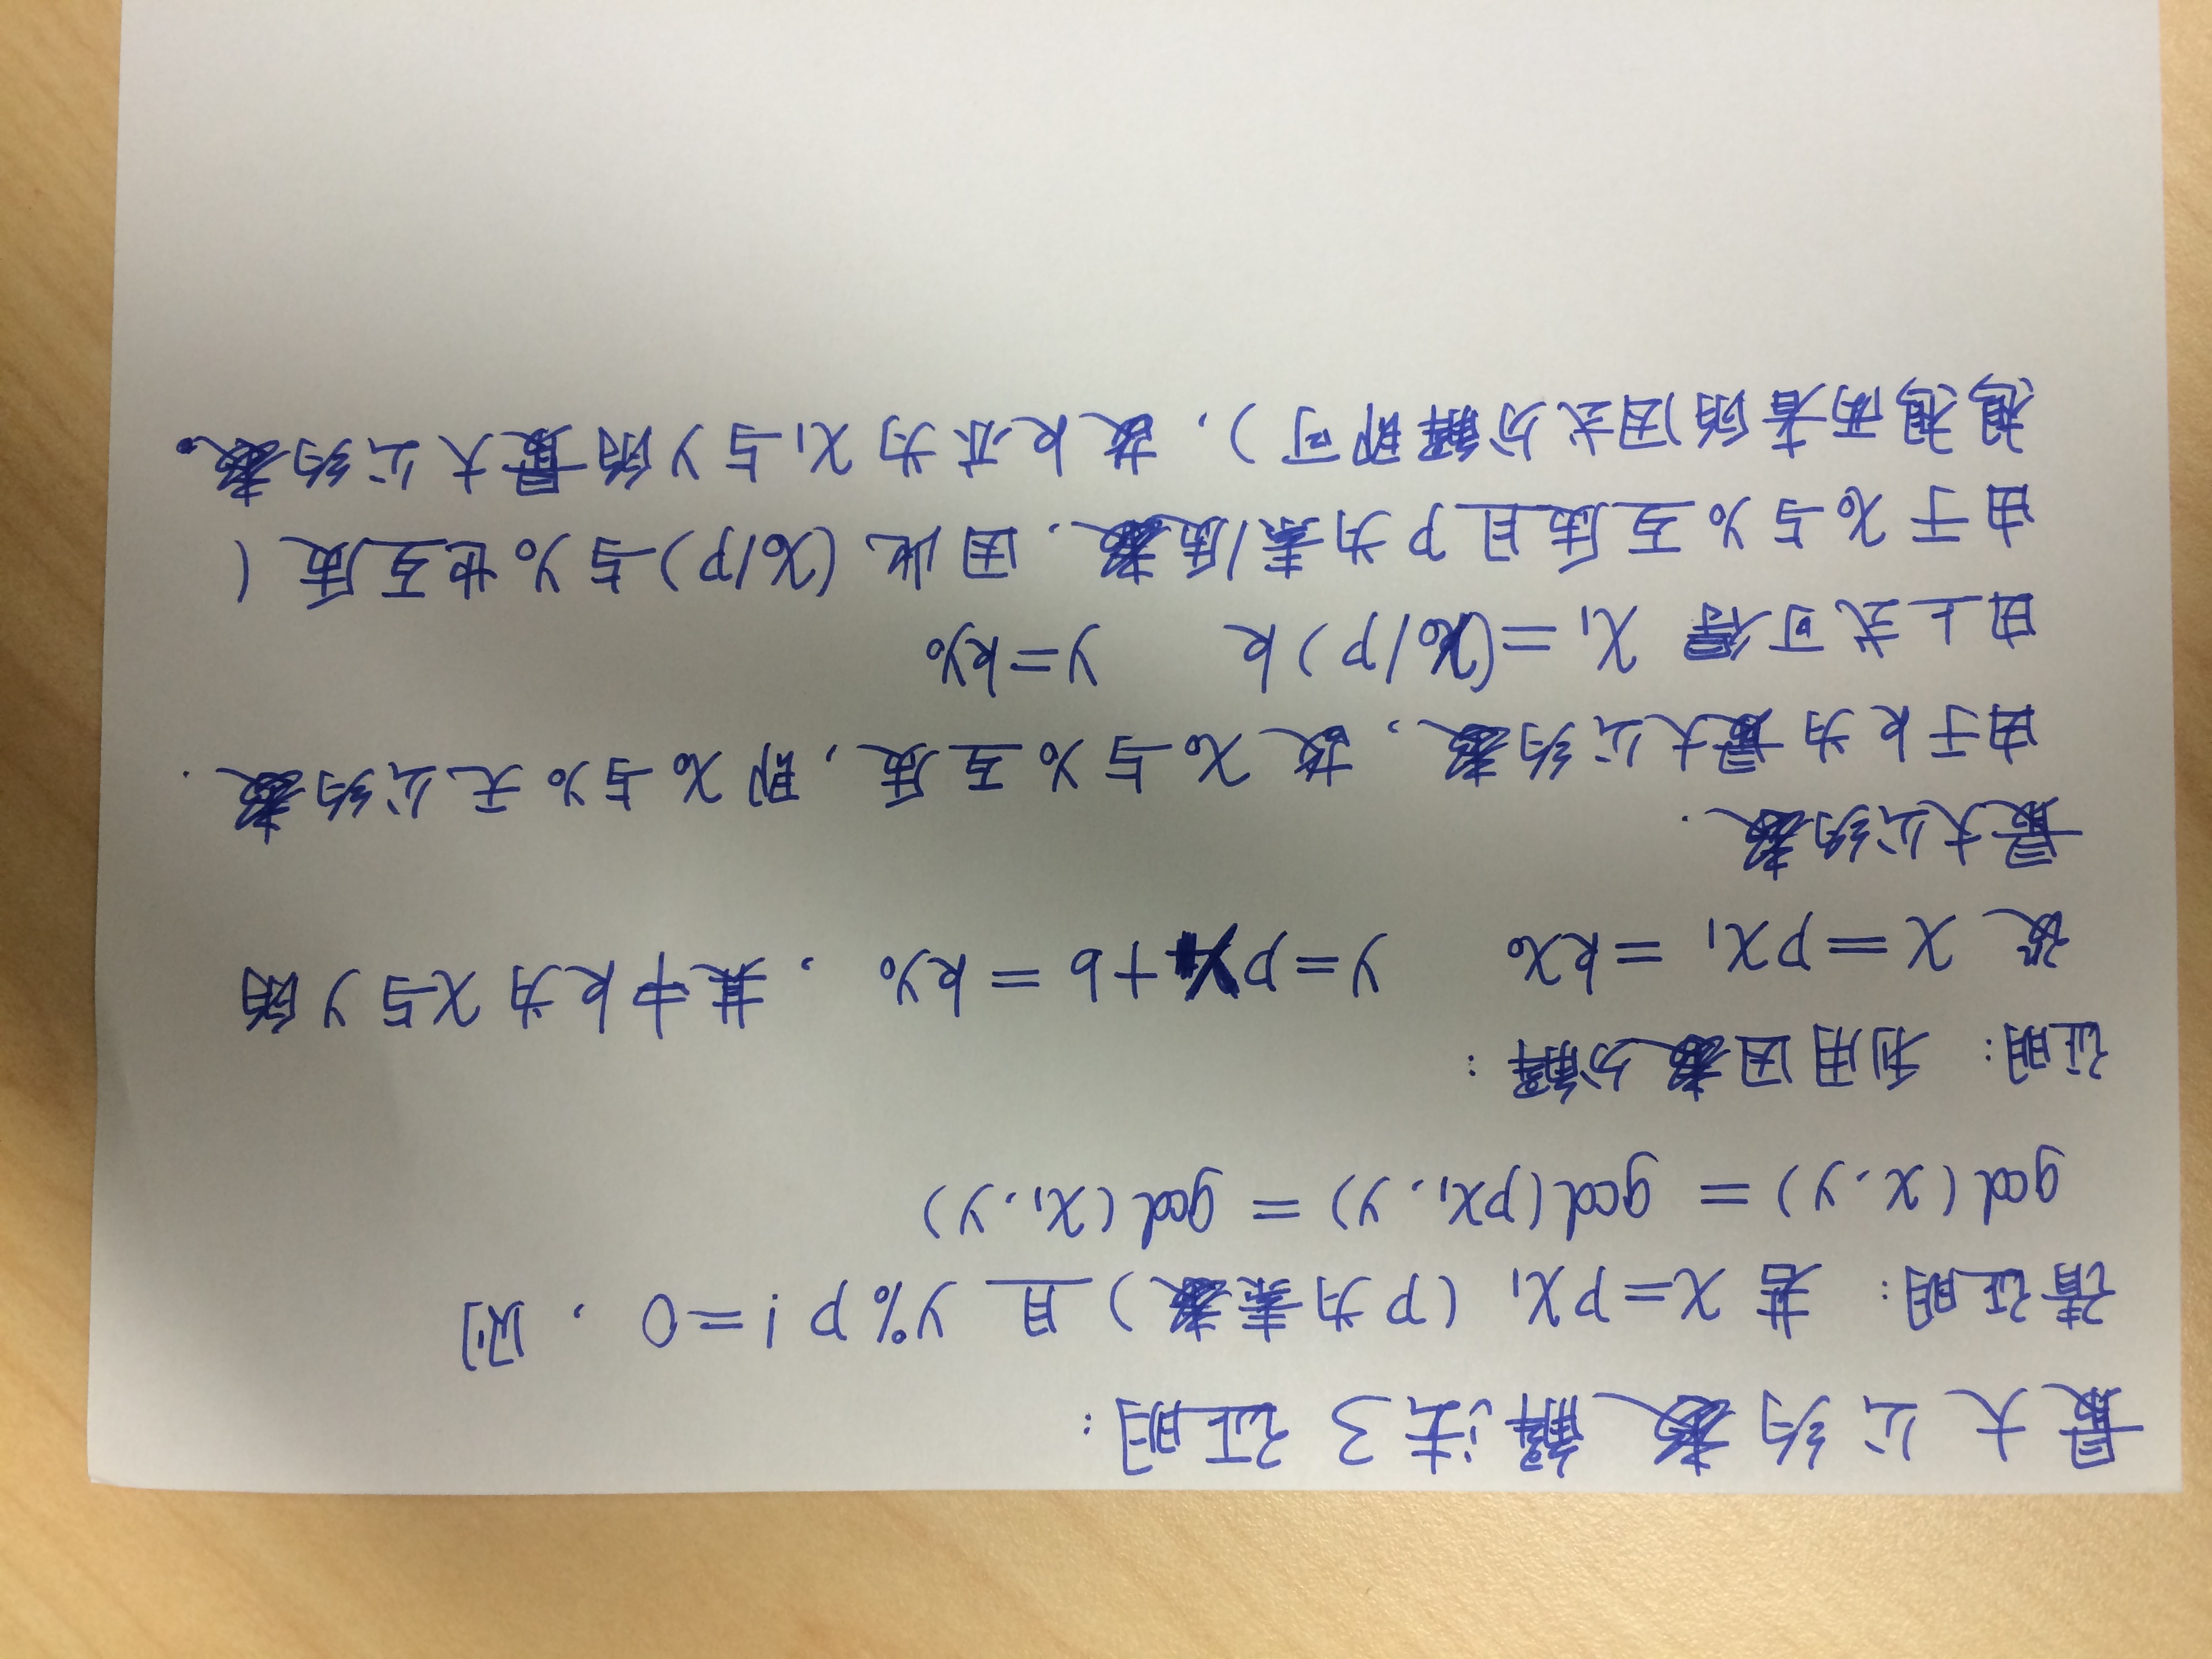 最大公约数解法3证明:
请证明: 若 x=px₁ (p为素数) 且 y%p !=0 , 则
gcd(x,y) = gcd(px₁,y) = gcd(x₁,y)
证明: 利用因数分解:
故 x=px₁ =kx₀ y=py₁+b =ky₀ , 其中k为x与y的
最大公约数.
由于k为最大公约数, 故 x₀与y₀互质, 即x₀与y₀无公约数.
由上式可得 x₁ =(x₀/p)k y=ky₀
由于x₀与y₀互质且p为素/质数, 因此 (x₀/p)与y₀也互质 (
想想两者的因式分解即可), 故k亦为x₁与y的最大公约数。